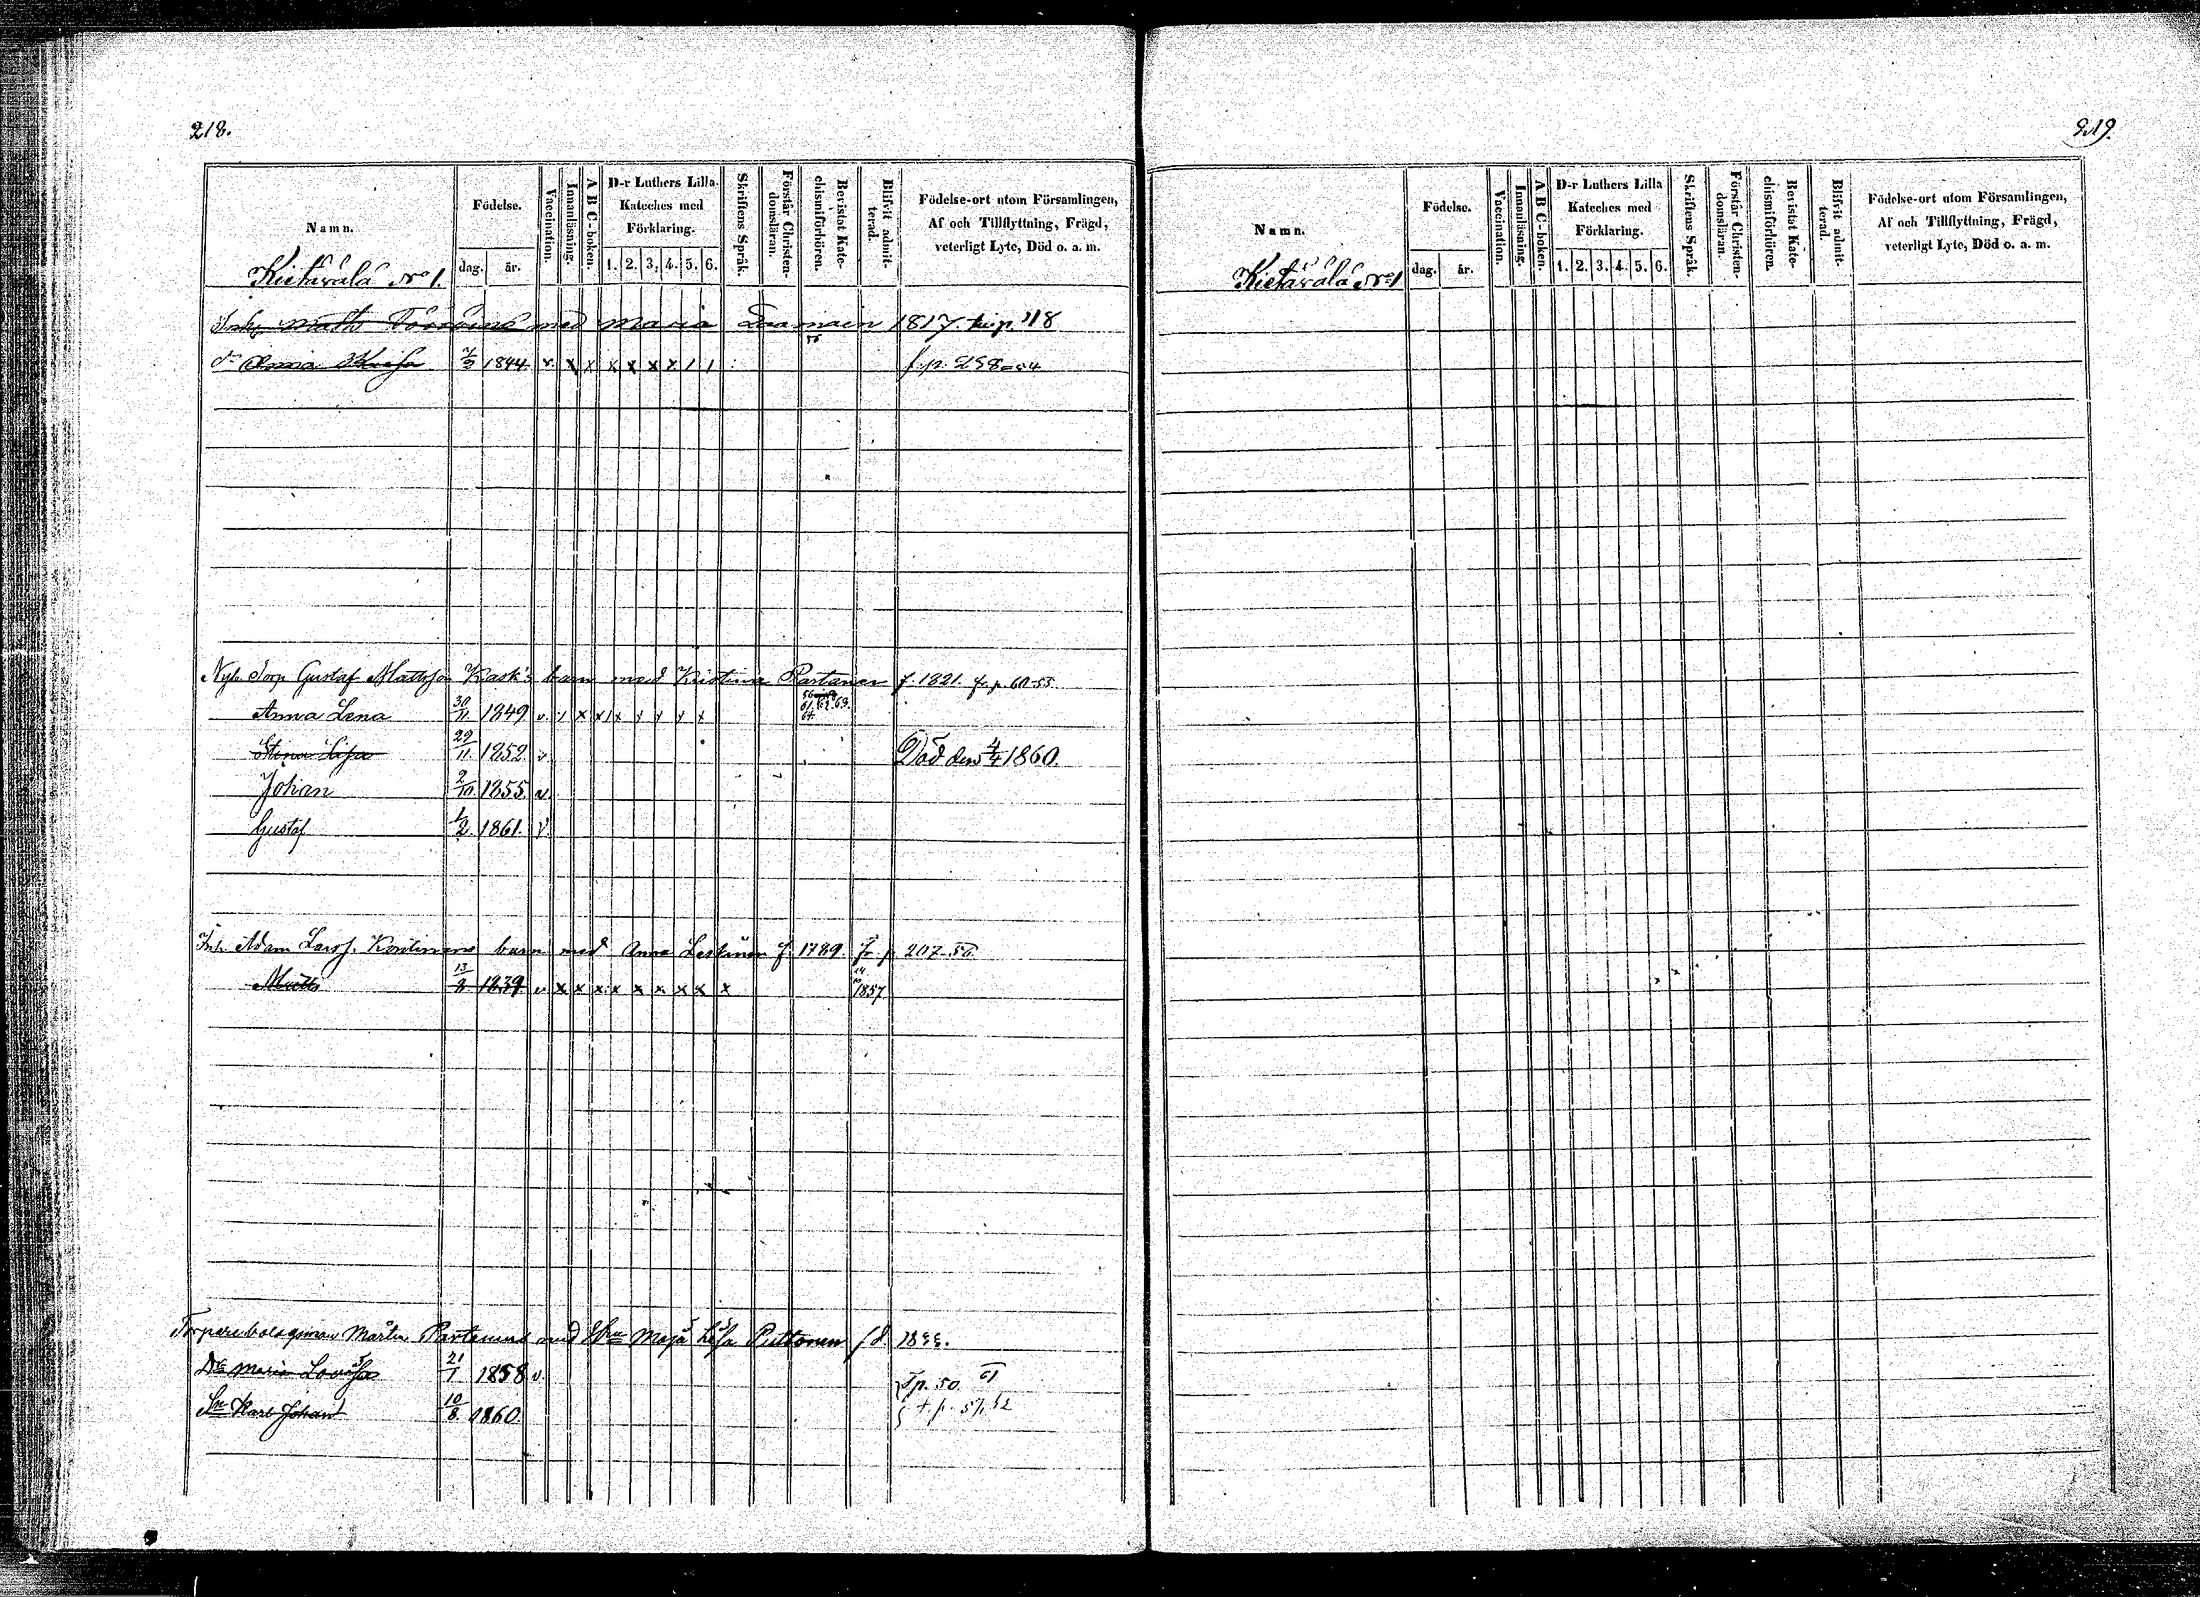 218.
Namn.
Födelse.
dag. år.
Vaccination.
Innanläsning.
A B C-boken.
D-r Luthers Lilla
Kateches med
Förklaring.
1. 2. 3. 4. 5. 6.
Skriftens Språk.
Förstår Christen-
domsläran.
Bevistat Kate-
chismiförhören.
Blifvit admit-
terad.
Födelse-ort utom Församlingen,
Af och Tillflyttning, Frägd,
veterligt Lyte, Död o. a. m.
Kietävälä No 1.
med Maria 1817.
Anna 1844 v. x x x x x x / /
Torp Gustaf Mattsson Kask's barn med Kristina Partanen f. 1821. fr. p. 60-55.
Anna Lena 30/11 1849 v. x x x x x x x
Stina Lisa 29/11 1852 v. Död den 4/4 1860.
Johan 2/10 1855 v.
Gustaf 1/2 1861. v.
Inh. Adam Larss. barn med Anna Leskinen f. 1789. fr. p. 207-56
Matts 13/8 1839 v x x x x x x x x x 1857
Torpare bolagsman Mårten Partanens med Hru Maja Lisa Puttonen
Dr Maria Lovisa 21/1 1858 v. Tp. 50 61
Sn Karl Johan 10/8 1860. t.p. 57, 62
219.
Namn.
Födelse.
dag. år.
Vaccination.
Innanläsning.
A B C-boken.
D-r Luthers Lilla
Kateches med
Förklaring.
1. 2. 3. 4. 5. 6.
Skriftens Språk.
Förstår Christen-
domsläran.
Bevistat Kate-
chismiförhören.
Blifvit admit-
terad.
Födelse-ort utom Församlingen,
Af och Tillflyttning, Frägd,
veterligt Lyte, Död o. a. m.
Kietävälä No 1